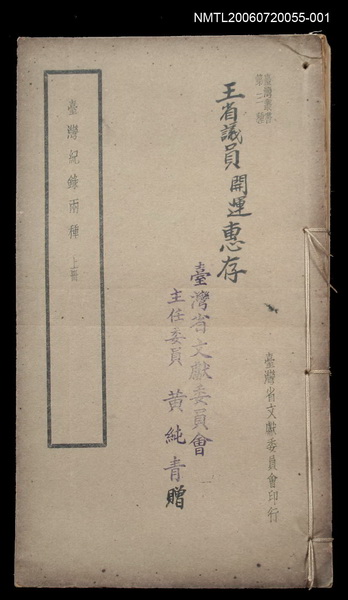 NMTL20060720055-001
臺灣叢書
第二種
王省議員開運惠存
臺灣省文獻委員會
主任委員 黃純青 贈
臺灣省文獻委員會印行
臺灣紀錄兩種 上冊